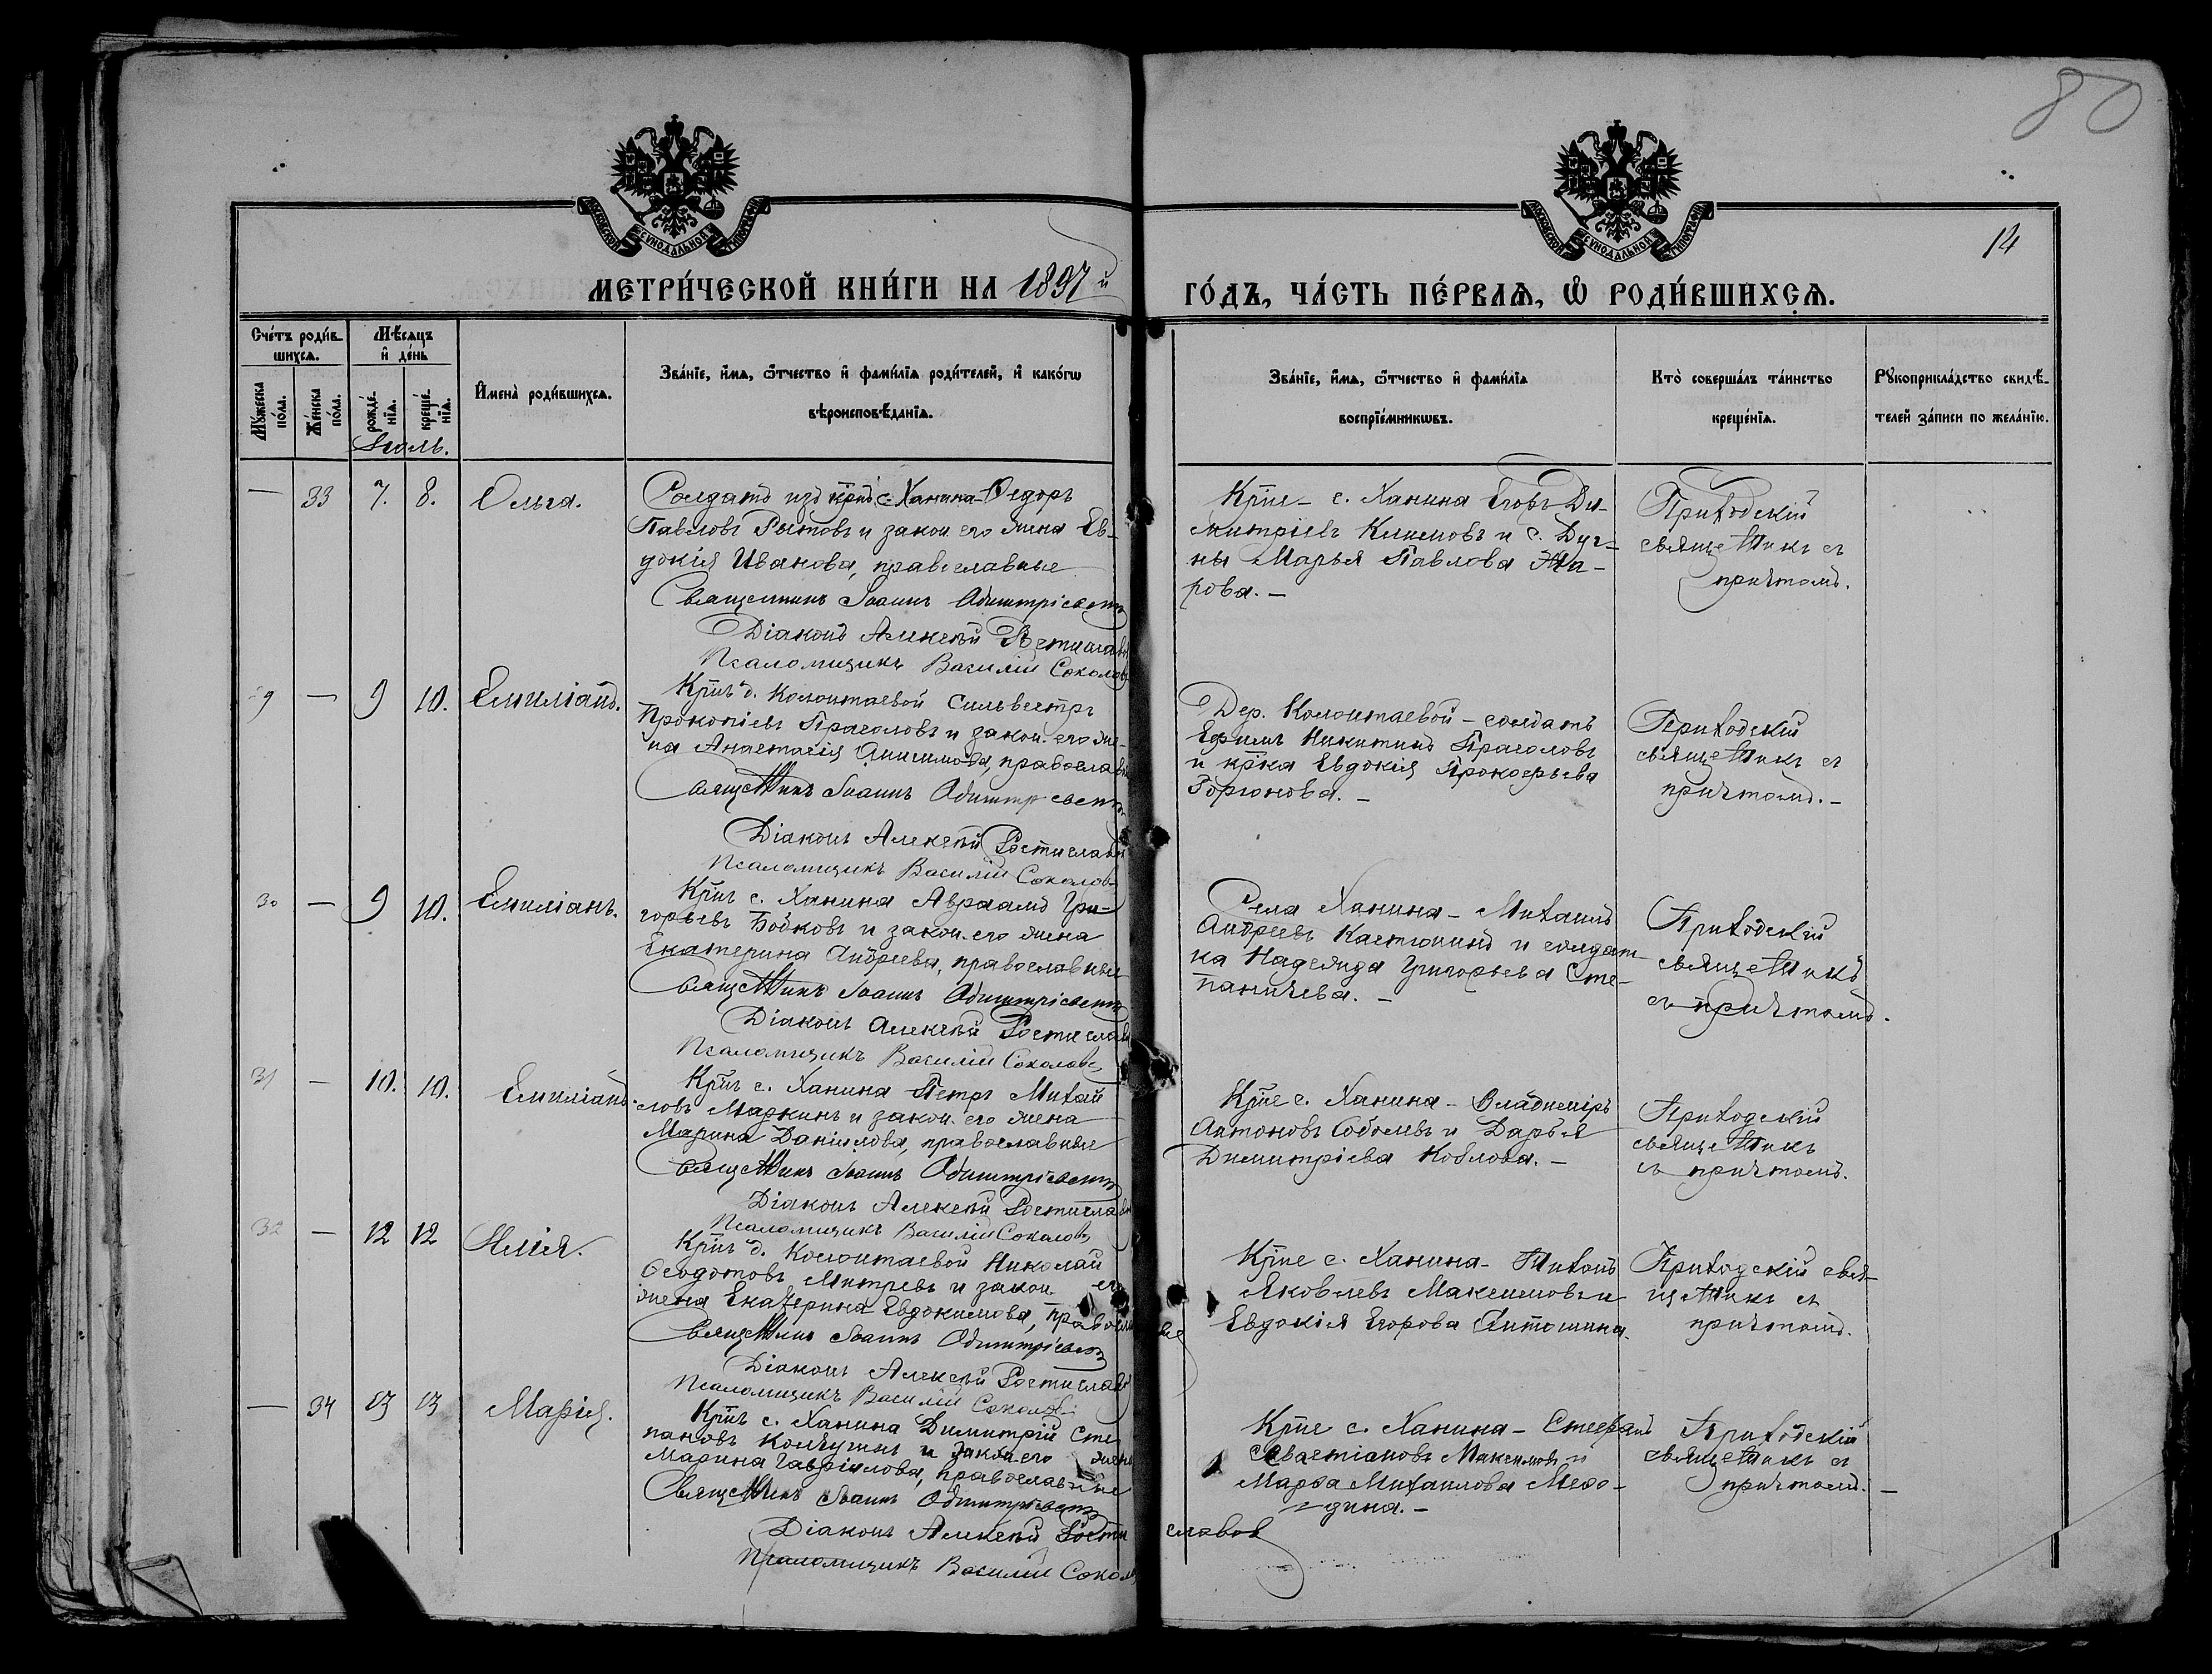 80
МОСКОВСКОЙ СУНОДАЛЬНОЙ ТИПОГРАФІИ
МОСКОВСКОЙ СУНОДАЛЬНОЙ ТИПОГРАФІИ
14
МЕТРИ́ЧЕСКОЙ КНИ́ГИ НА 1897й ГО́ДЪ, ЧА́СТЬ ПЕ́РВАѦ, Ѡ РОДИ́ВШИХСѦ.
Сче́тъ роди́в-
шихсѧ.
Мꙋ́жеска
по́ла.
Же́нска
по́ла.
Мѣ́сѧцъ
и҆ де́нь
рожде́-
нїѧ.
креще́-
нїѧ.
И҆мена̀ роди́вшихсѧ.
Зва́нїе, и҆́мѧ, ѻ҆́тчество и҆ фами́лїѧ роди́телей, и҆ како́гѡ
вѣроисповѣ́данїѧ.
Зва́нїе, и҆́мѧ, ѻ҆́тчество и҆ фами́лїѧ
воспрїе́мникѡвъ.
Кто̀ соверша́лъ та́инство
креще́нїѧ.
Рꙋкоприкла́дство свидѣ́-
телей за́писи по жела́нїю.
Іюль.
— 33 7. 8. Ольга.
Солдатъ изъ крн с. Ханина Ѳедоръ
Павловъ Рытовъ и закон. его жена Ев-
докія Иванова, православные
Священникъ Іоаннъ
Діаконъ Алексѣй Ростиславов
Псаломщикъ Василій Соколов
Крне с. Ханина Егоръ Ди-
митріевъ Климовъ и с. Дуг-
ны Марья Павлова Жа-
рова. —
Приходскій
священникъ съ
причтомъ.
29 — 9 10. Емиліанъ.
Крнъ д. Колонтаевой Сильвестръ
Прокопіевъ Прасоловъ и закон. его же-
на Анастасія Анисимова, православн
Священникъ Іоаннъ
Діаконъ Алексѣй Ростиславов
Псаломщикъ Василій Соколов
Дер. Колонтаевой — солдатъ
Ефимъ Никитинъ Прасоловъ
и крка Евдокія Прокофьева
Горюнова. —
Приходскій
священникъ съ
причтомъ. —
30 — 9 10. Емиліанъ.
Крнъ с. Ханина Авраамъ Гри-
горьевъ Бобковъ и закон. его жена
Екатерина Андреева, православные
Священникъ Іоаннъ
Діаконъ Алексѣй Ростислав
Псаломщикъ Василій Соколовъ
Села Ханина — Михаилъ
Андреевъ Костюнинъ и солдат-
ка Надежда Григорьева Сте-
паничева. —
Приходскій
священникъ
съ причтомъ.
31 — 10. 10. Емиліанъ.
Крнъ с. Ханина Петръ Михай
ловъ Маркинъ и закон. его жена
Марина Даніилова, православные
Священникъ Іоаннъ
Діаконъ Алексѣй Ростислав
Псаломщикъ Василій Соколовъ
Крне с. Ханина — Владиміръ
Антоновъ Соболевъ и Дарья
Димитріева Коблова. —
Приходскій
священникъ
съ причтомъ.
32 — 12 12 Илія.
Крнъ д. Колонтаевой Николай
Ѳеодотовъ Митревъ и закон. его
жена Екатерина Евдокимова, православные
Священникъ Іоаннъ
Діаконъ Алексѣй Ростислав
Псаломщикъ Василій Соколов
Крне с. Ханина — Тихонъ
Яковлевъ Максимовъ и
Евдокія Егорова Антошина.
Приходскій свя-
щенникъ съ
причтомъ.
— 34 13 13 Марія.
Крнъ с. Ханина Димитрій Сте
пановъ и закон. его жена
Марина Гавріилова, православные
Священникъ Іоаннъ
Діаконъ Алексѣй Ростиславов
Псаломщикъ Василій Сокол
Крне с. Ханина — Стефанъ
Севастіановъ Максимовъ и
Марѳа Михаилова
Приходскій
священникъ съ
причтомъ. —